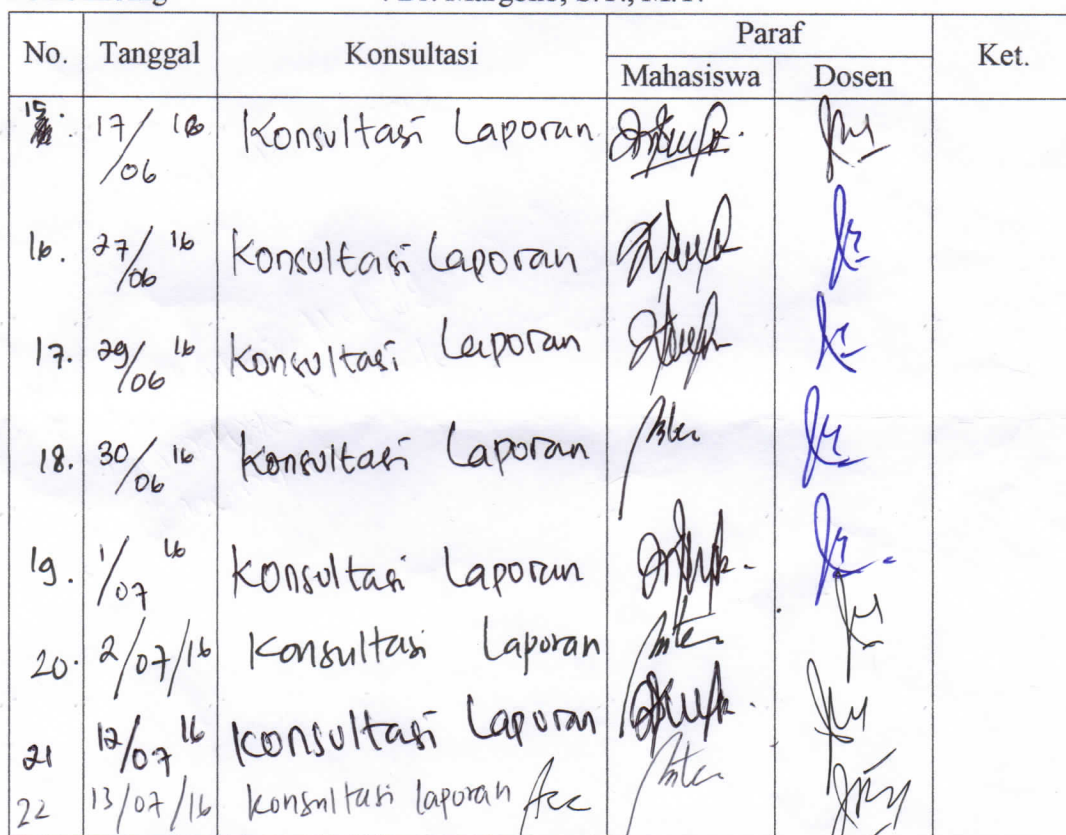 : Dr. Margono, S.T., M.T.
No. Tanggal Konsultasi Paraf Ket.
Mahasiswa Dosen
15. 17/06 16 Konsultasi Laporan
16. 27/06 16 Konsultasi Laporan
17. 29/06 16 Konsultasi Laporan
18. 30/06 16 Konsultasi Laporan
19. 1/07 16 Konsultasi Laporan
20. 2/07/16 Konsultasi Laporan
21 12/07 16 Konsultasi Laporan
22 13/07/16 Konsultasi laporan Acc